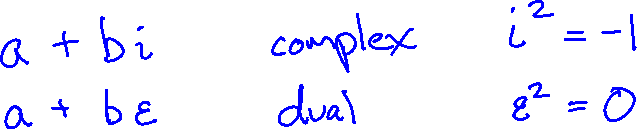 a + bi complex i² = -1
a + bε dual ε² = 0